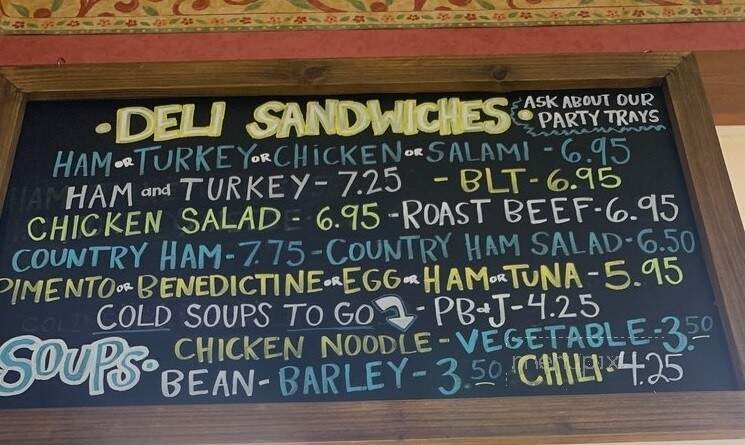 • DELI SANDWICHES •
ASK ABOUT OUR
PARTY TRAYS
HAM OR TURKEY OR CHICKEN OR SALAMI - 6.95
HAM and TURKEY - 7.25 - BLT - 6.95
CHICKEN SALAD - 6.95 - ROAST BEEF - 6.95
COUNTRY HAM - 7.75 - COUNTRY HAM SALAD - 6.50
PIMENTO OR BENEDICTINE OR EGG OR HAM OR TUNA - 5.95
COLD SOUPS TO GO - PB&J - 4.25
SOUPS •
CHICKEN NOODLE - VEGETABLE - 3.50
BEAN - BARLEY - 3.50 CHILI - 4.25
menupix